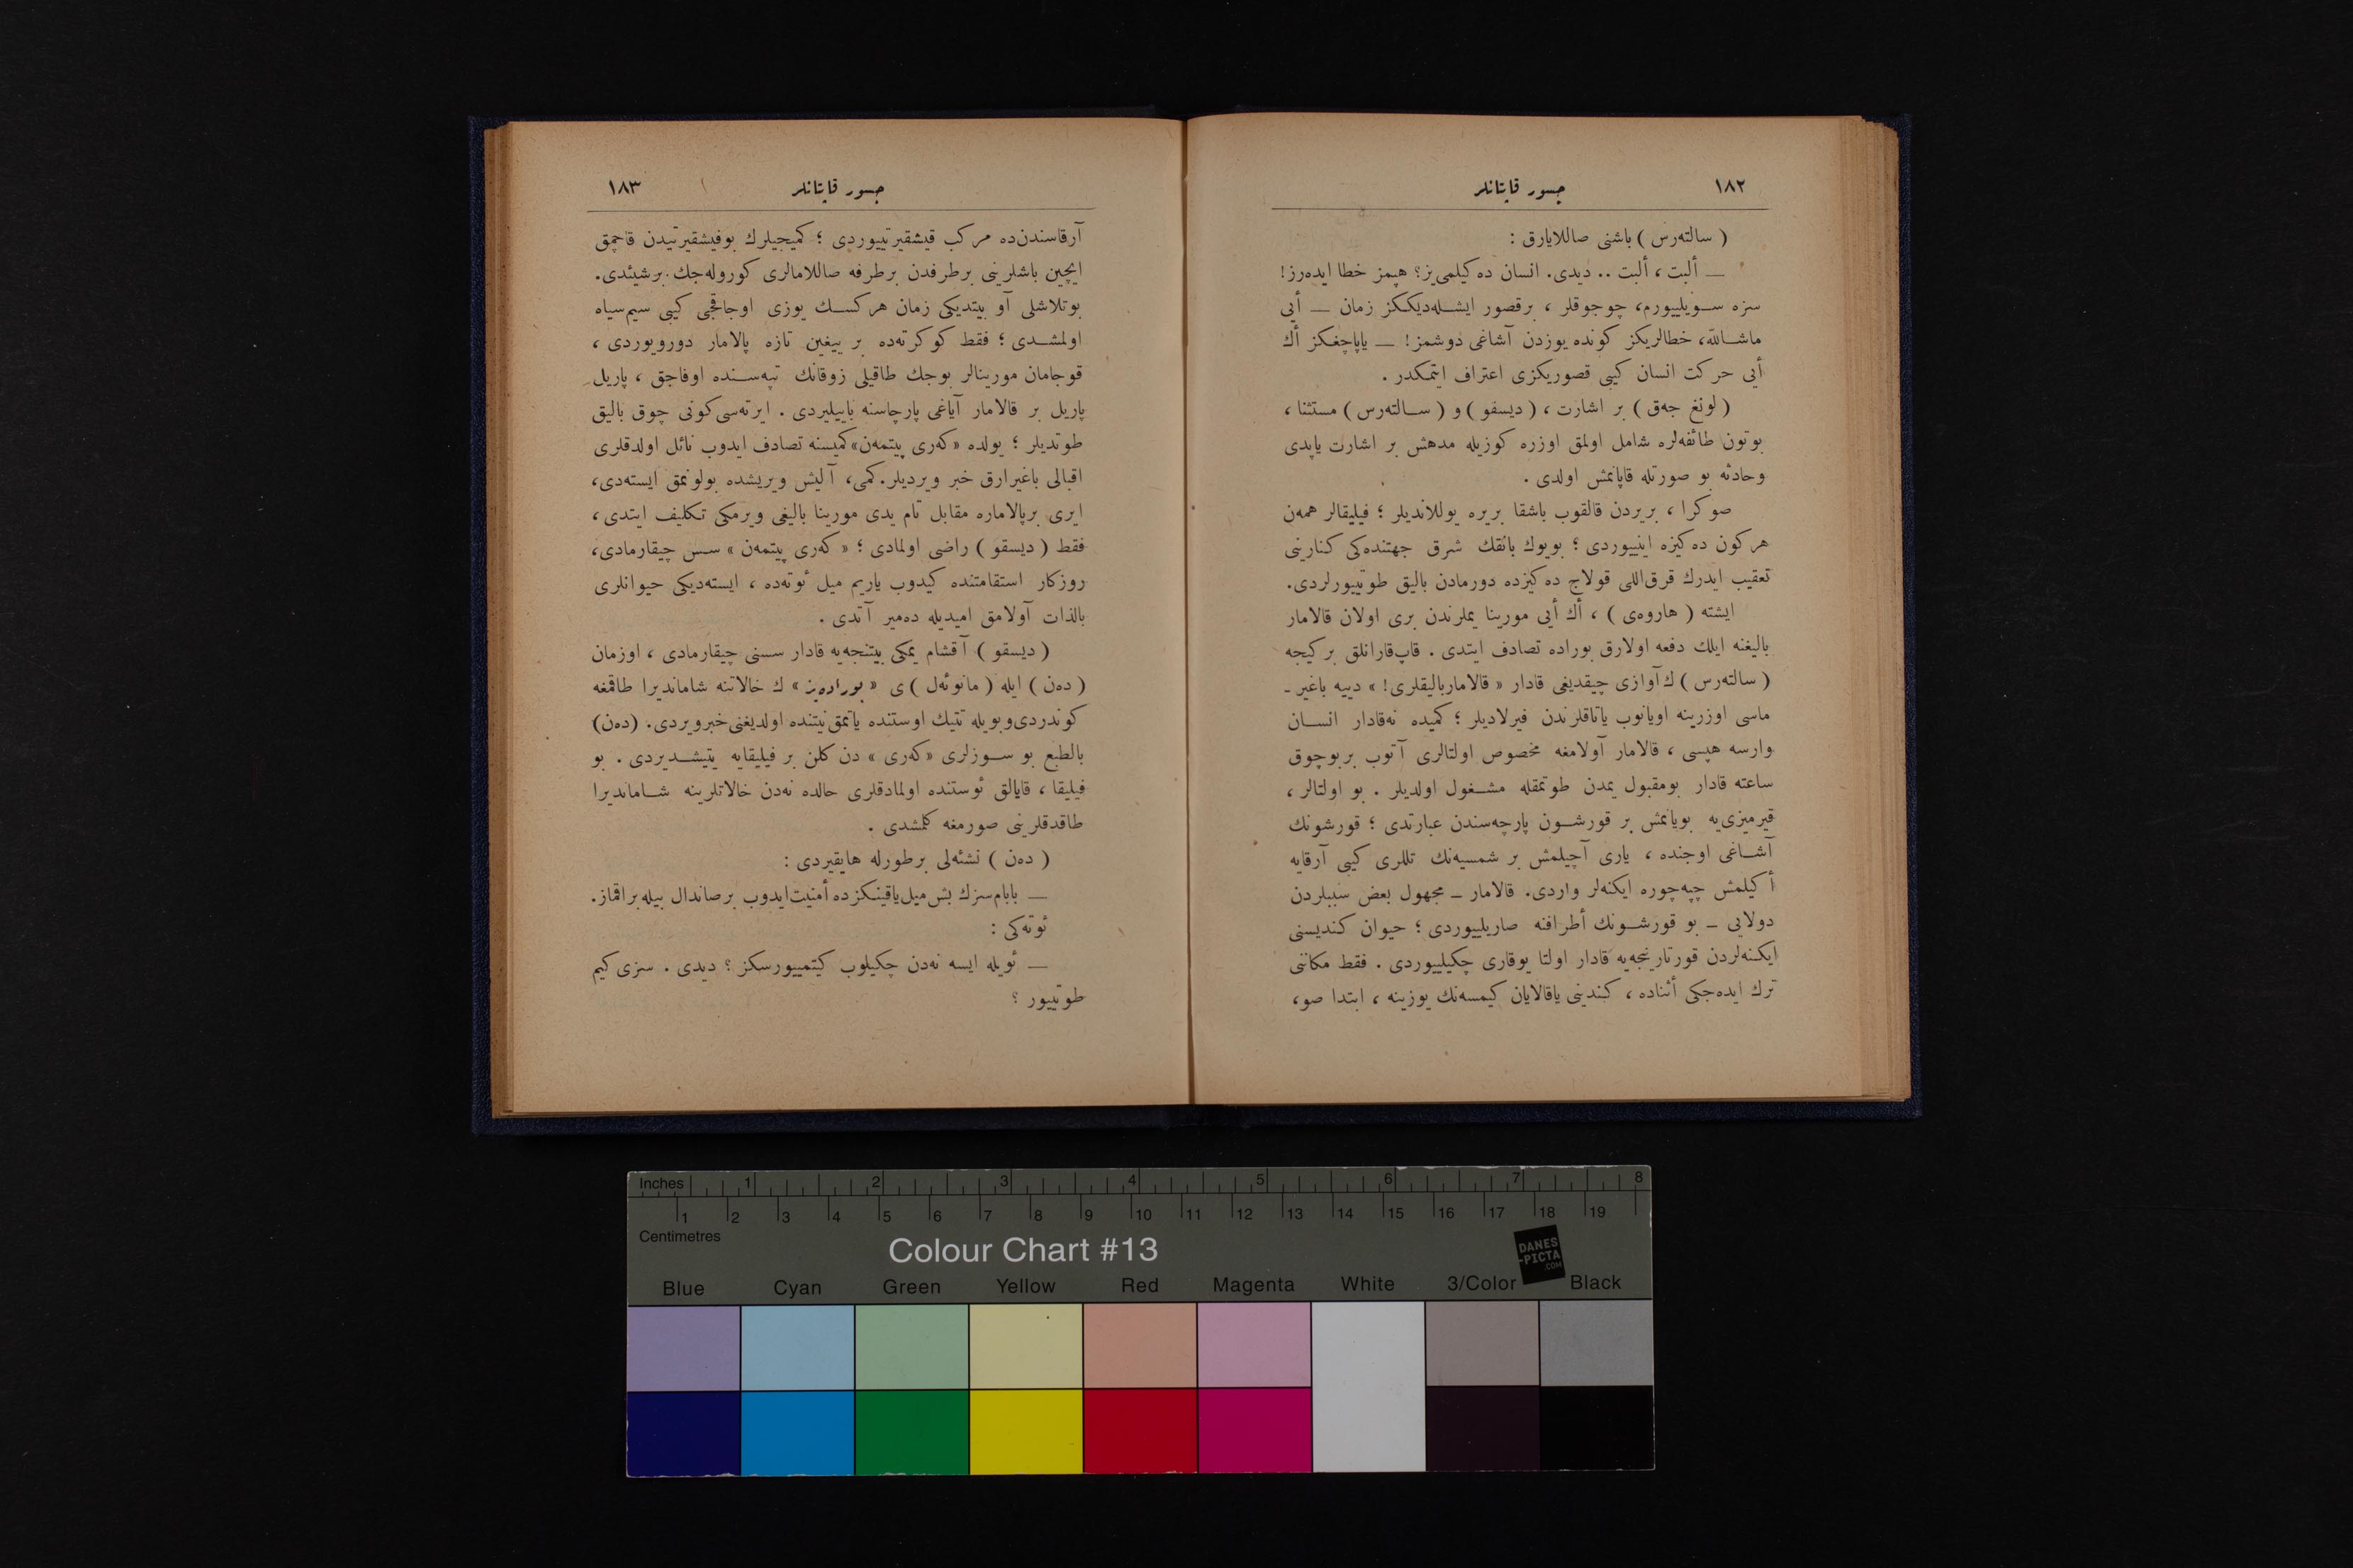 ١٨٢
جسور قاپتانلر
( سالته‌رس ) باشنی صاللایارق :
— ألبت ، ألبت .. دیدی. انسان ده‌کیلمی‌یز؟ هپمز خطا ایده‌رز!
سزه سویلییورم، چوجوقلر ، برقصور ایشله‌دیککز زمان — أیی
ماشاالله، خطالریکز کونده یوزدن آشاغی دوشمز! — یاپاجغکز أك
أیی حرکت انسان کیبی قصوریکزی اعتراف ایتمکدر .
( لونغ جه‌ق ) بر اشارت ، ( دیسقو ) و ( سالته‌رس ) مستثنا ،
بوتون طائفه‌لره شامل اولمق اوزره کوزیله مدهش بر اشارت یاپدی
وحادثه بو صورتله قاپانمش اولدی .
صوکرا ، بریردن قالقوب باشقا بریره یوللاندیلر ؛ فیلیقالر همه‌ن
هرکون ده‌کیزه اینییوردی ؛ بویوك بانقك شرق جهتنده‌کی کنارینی
تعقیب ایدرك قرق‌اللی قولاج ده‌کیزده دورمادن بالیق طوتییورلردی.
ایشته ( هاروه‌ی ) ، أك أیی مورینا یملرندن بری اولان قالامار
بالیغنه ایلك دفعه اولارق بوراده تصادف ایتدی . قاپ‌قارانلق برکیجه
( سالته‌رس ) ك‌آوازی چیقدیغی قادار « قالاماربالیقلری! » دییه باغیر ـ
ماسی اوزرینه اویانوب یاتاقلرندن فیرلادیلر ؛ کمیده نه‌قادار انسان
وارسه هپسی ، قالامار آولامغه مخصوص اولتالری آتوب بربوچوق
ساعته قادار بومقبول یمدن طوتمقله مشغول اولدیلر . بو اولتالر ،
قیرمیزی‌یه بویانمش بر قورشون پارچه‌سندن عبارتدی ؛ قورشونك
آشاغی اوجنده ، یاری آچیلمش بر شمسیه‌نك تللری کیبی آرقایه
أکیلمش چپه‌چوره ایکنه‌لر واردی. قالامار ـ مجهول بعض سببلردن
دولایی ـ بو قورشونك أطرافنه صاریلییوردی ؛ حیوان کندیسنی
ایکنه‌لردن قورتارینجه‌یه قادار اولتا یوقاری چکیلییوردی . فقط مکاننی
ترك ایده‌جکی أثناده ، کندینی یاقالایان کیمسه‌نك یوزینه ، ابتدا صو،
جسور قاپتانلر
١٨٣
آرقاسندن‌ده مرکب فیشقیرتییوردی ؛ کمیجیلرك بوفیشقیرتیدن قاچمق
ایچین باشلرینی برطرفدن برطرفه صاللامالری کوروله‌جك برشیئدی.
بوتلاشلی آو بیتدیکی زمان هرکسك یوزی اوجاقجی کیبی سیم‌سیاه
اولمشدی ؛ فقط کوکرته‌ده بر ییغین تازه پالامار دورویوردی ،
قوجامان مورینالر بوجك طاقیلی زوقانك تپه‌سنده اوفاجق ، پاریل ـ
پاریل بر قالامار آیاغی پارچاسنه باییلیردی . ایرته‌سی‌کونی چوق بالیق
طوتدیلر ؛ یولده «که‌ری پیتمه‌ن» کمیسنه تصادف ایدوب نائل اولدقلری
اقبالی باغیرارق خبر ویردیلر.کمی، آلیش ویریشده بولونمق ایسته‌دی،
ایری برپالاماره مقابل تام یدی مورینا بالیغی ویرمکی تکلیف ایتدی ،
فقط ( دیسقو ) راضی اولمادی ؛ «که‌ری پیتمه‌ن» سس چیقارمادی،
روزکار استقامتنده کیدوب یاریم میل ئوته‌ده ، ایسته‌دیکی حیوانلری
بالذات آولامق امیدیله ده‌میر آتدی .
( دیسقو ) آقشام یمکی بیتنجه‌یه قادار سسنی چیقارمادی ، اوزمان
( ده‌ن ) ایله ( مانوئه‌ل ) ی « بوراده‌یز » ك خالاتنه شاماندیرا طاقمغه
کوندردی‌وبویله تتیك اوستنده یاتمق‌نیتنده اولدیغنی‌خبرویردی. (ده‌ن)
بالطبع بو سوزلری «که‌ری » دن کلن بر فیلیقایه یتیشدیردی . بو
فیلیقا ، قایالق ئوستنده اولمادقلری حالده نه‌دن خالاتلرینه شاماندیرا
طاقدقلرینی صورمغه کلمشدی .
( ده‌ن ) نشئه‌لی برطورله هایقیردی :
— بابام‌سزك بش‌میل‌یاقینکزده أمنیت‌ایدوب برصاندال بیله براقماز.
ئوته‌کی :
— ئویله ایسه نه‌دن چکیلوب کیتمییورسکز ؟ دیدی . سزی کیم
طوتییور ؟
Inches 1 2 3 4 5 6 7 8
1 2 3 4 5 6 7 8 9 10 11 12 13 14 15 16 17 18 19
Centimetres
Colour Chart #13
DANES
-PICTA
.COM
Blue Cyan Green Yellow Red Magenta White 3/Color Black